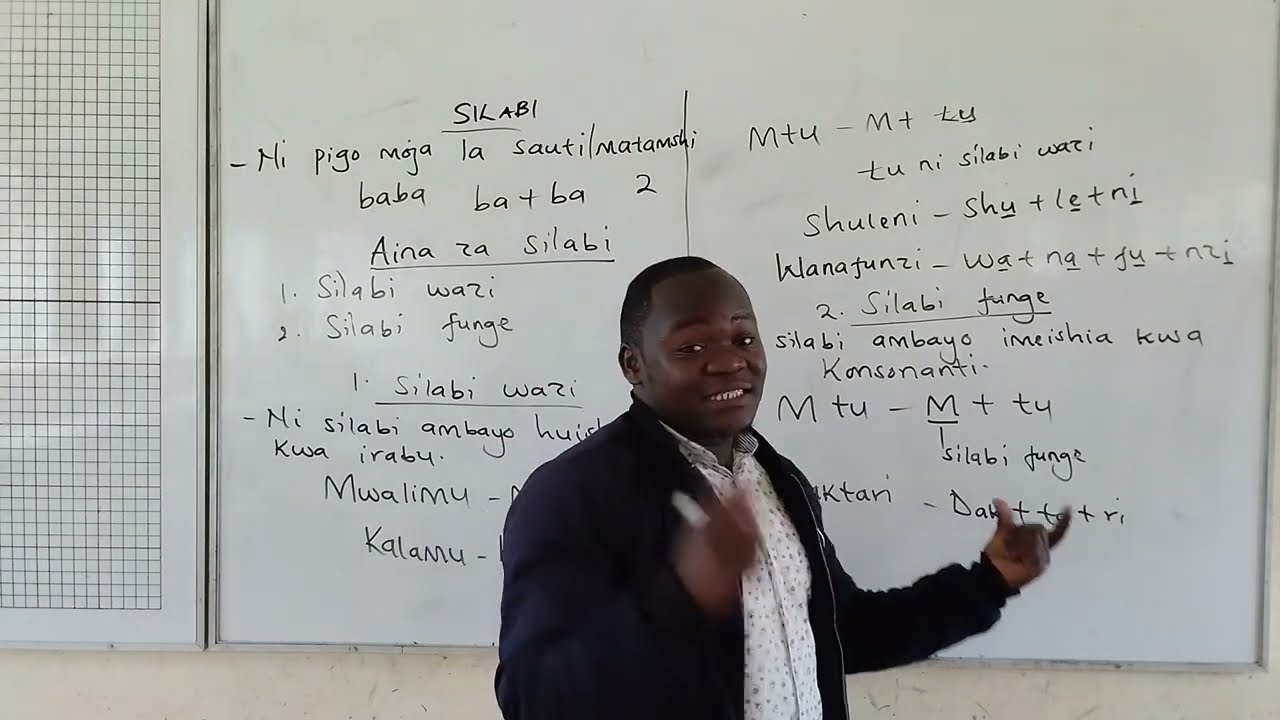 SILABI
- Ni pigo moja la sauti/matamshi
baba ba + ba 2
Aina za Silabi
1. Silabi wazi
2. Silabi funge
1. Silabi wazi
- Ni silabi ambayo huis
kwa irabu.
Mwalimu -
Kalamu -
Mtu - M + tu
tu ni silabi wazi
Shuleni - Shu + le + ni
Wanafunzi - wa + na + fu + nzi
2. Silabi funge
silabi ambayo imeishia kwa
Konsonanti.
M tu - M + tu
silabi funge
ktari - Dak + ta + ri